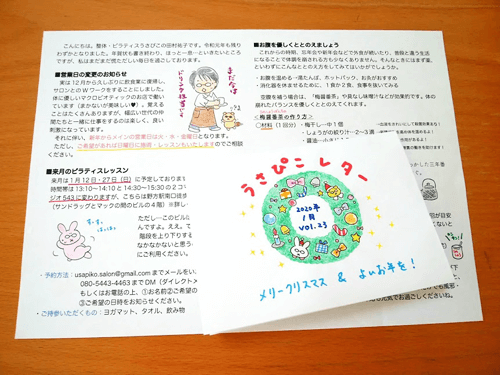 こんにちは。整体・ピラティスうさぴこの田村祐子です。令和元年も残り
わずかとなりました。年賀状も書き終わり、ほっと一息…といきたいところ
ですが、私はまだまだ慌ただしい毎日を過ごしております。
■営業日の変更のお知らせ
実は12月から久しぶりに飲食業に復帰し、
サロンとのWワークをすることにしました。
体に優しいマクロビオティックのお店で働い
ています(まかないが美味しい♥)。覚える
ことはたくさんありますが、幅広い世代の仲
間たちと一緒に仕事をするのは楽しく、良い
刺激になっています。
それに伴い、新年からメインの営業日は火・水・金曜日となります。
ただし、ご希望があれば日曜日に施術・レッスンもいたしますのでご相談
ください。
まだまだ
ドリンク担当です
■来月のピラティスレッスン
来月は1月12日・27日(日)に予定しております
時間帯は13:10〜14:10と14:30〜15:30の2コ
ジオ543に変わりますが、こちらも野方駅南口徒歩
(サンドラッグとマックの間のビルの4階)
ただし…このビルに
んですよ。ええ。で
階段を上り下りする
なかなかないと思う
にご利用ください。
・予約方法:usapiko.salon@gmail.comまでメールをい
080-5443-4463までDM(ダイレクト
もしくはお電話の上、①お名前②ご希望の
③ご希望の日時をお知らせください。
・ご持参いただくもの:ヨガマット、タオル、飲み物
■お腹を優しくととのえましょう
これからの時期、忘年会や新年会などで外食が続いたり、普段と違う生活
になることで体調を崩される方も少なくありません。そんなときにはまず夏
といわずにこんなととのえ方をしてみてはいかがでしょうか。
・お腹を温める…湯たんぽ、ホットパック、お灸がおすすめ
・消化器を休ませるために、1食か2食、食事を抜いてみる
空腹を補う場合は、「梅醤番茶」や具なし味噌汁などが効果的です。体の
崩れたバランスを優しくととのえてくれます。
<梅醤番茶の作り方>
〔材料(1回分)〕・梅干し…中1個
・しょうがの絞り汁…2〜3滴
・醤油…小さじ
うさぴこレター
2020年
1月
vol.23
メリークリスマス & よいお年を!